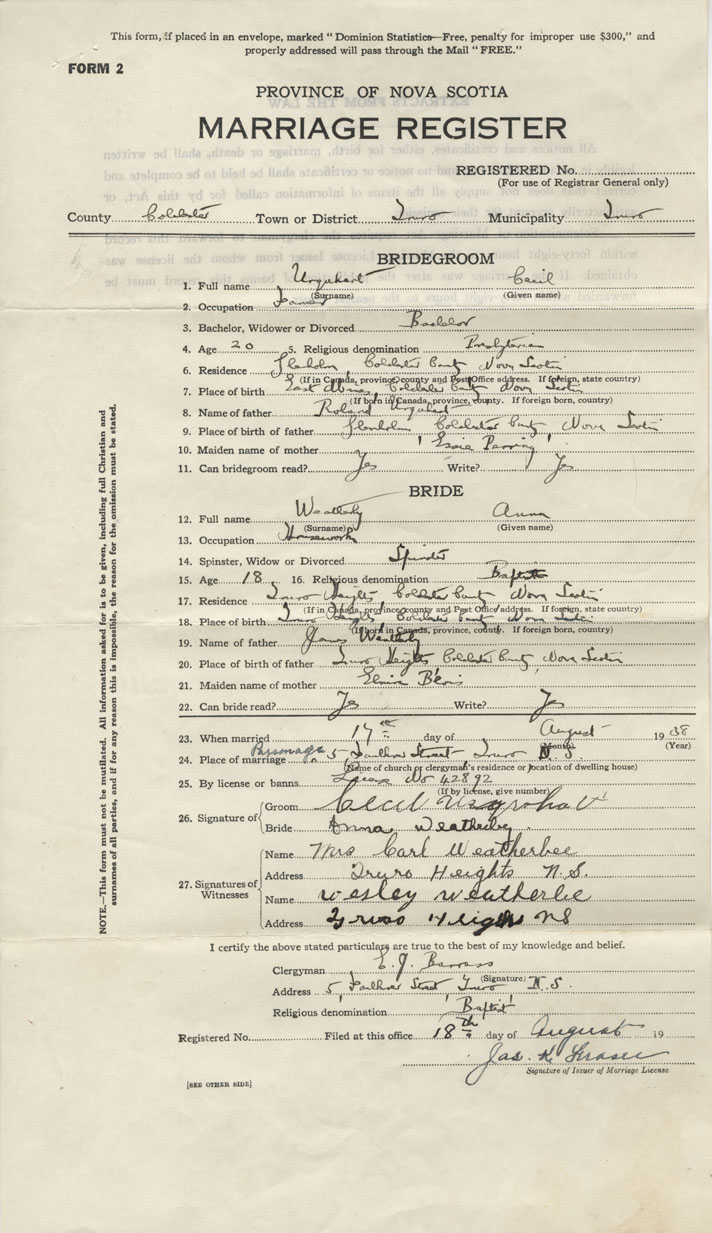 This form, if placed in an envelope, marked "Dominion Statistics—Free, penalty for improper use $300," and
properly addressed will pass through the Mail "FREE."
FORM 2
PROVINCE OF NOVA SCOTIA
MARRIAGE REGISTER
REGISTERED No.
(For use of Registrar General only)
County Colchester Town or District Truro Municipality Truro
BRIDEGROOM
1. Full name Urquhart Cecil
(Surname) (Given name)
2. Occupation Farmer
3. Bachelor, Widower or Divorced Bachelor
4. Age 20 5. Religious denomination Presbyterian
6. Residence Glenholm, Colchester County Nova Scotia
(If in Canada, province, county and Post Office address. If foreign, state country)
7. Place of birth East Mines, Colchester County Nova Scotia
(If born in Canada, province, county. If foreign born, country)
8. Name of father Roland Urquhart
9. Place of father Glenholm Colchester County, Nova Scotia
10. Maiden name of mother Essie
11. Can bridegroom read? Yes Write? Yes
BRIDE
12. Full name Weatherby Anna
(Surname) (Given name)
13. Occupation Housework
14. Spinster, Widow or Divorced Spinster
15. Age 18 16. Religious denomination Baptist
17. Residence Truro Heights Colchester County Nova Scotia
(If in Canada, province county and Post Office address. If foreign, state country)
18. Place of birth Truro Heights, Colchester County Nova Scotia
(If born in Canada, province, county. If foreign born, country)
19. Name of father James Weatherby
20. Place of birth of father Truro Heights, Colchester County, Nova Scotia
21. Maiden name of mother Elmira
22. Can bride read? Yes Write? Yes
23. When married 17th day of August 1938
(Month) (Year)
24. Place of marriage Parsonage, 5 Street Truro N.S.
(Name of church or clergyman's residence or location of dwelling house)
25. By license or banns License No 42892
(If by license, give number)
26. Signature of Groom Cecil
Bride Anna Weatherby
27. Signatures of Witnesses
Name Mrs Carl Weatherbee
Address Truro Heights N.S.
Name Wesley Weatherbe
Address Truro Heights NS
I certify the above stated particulars are true to the best of my knowledge and belief.
Clergyman E. J. Barrass
(Signature)
Address 5, Street Truro N.S.
Religious denomination Baptist
Registered No. Filed at this office 18th day of August 19
Jas. K. Fraser
Signature of Issuer of Marriage License
[SEE OTHER SIDE]
NOTE.—This form must not be mutilated. All information asked for is to be given, including full Christian and
surnames of all parties, and if for any reason this is impossible, the reason for the omission must be stated.